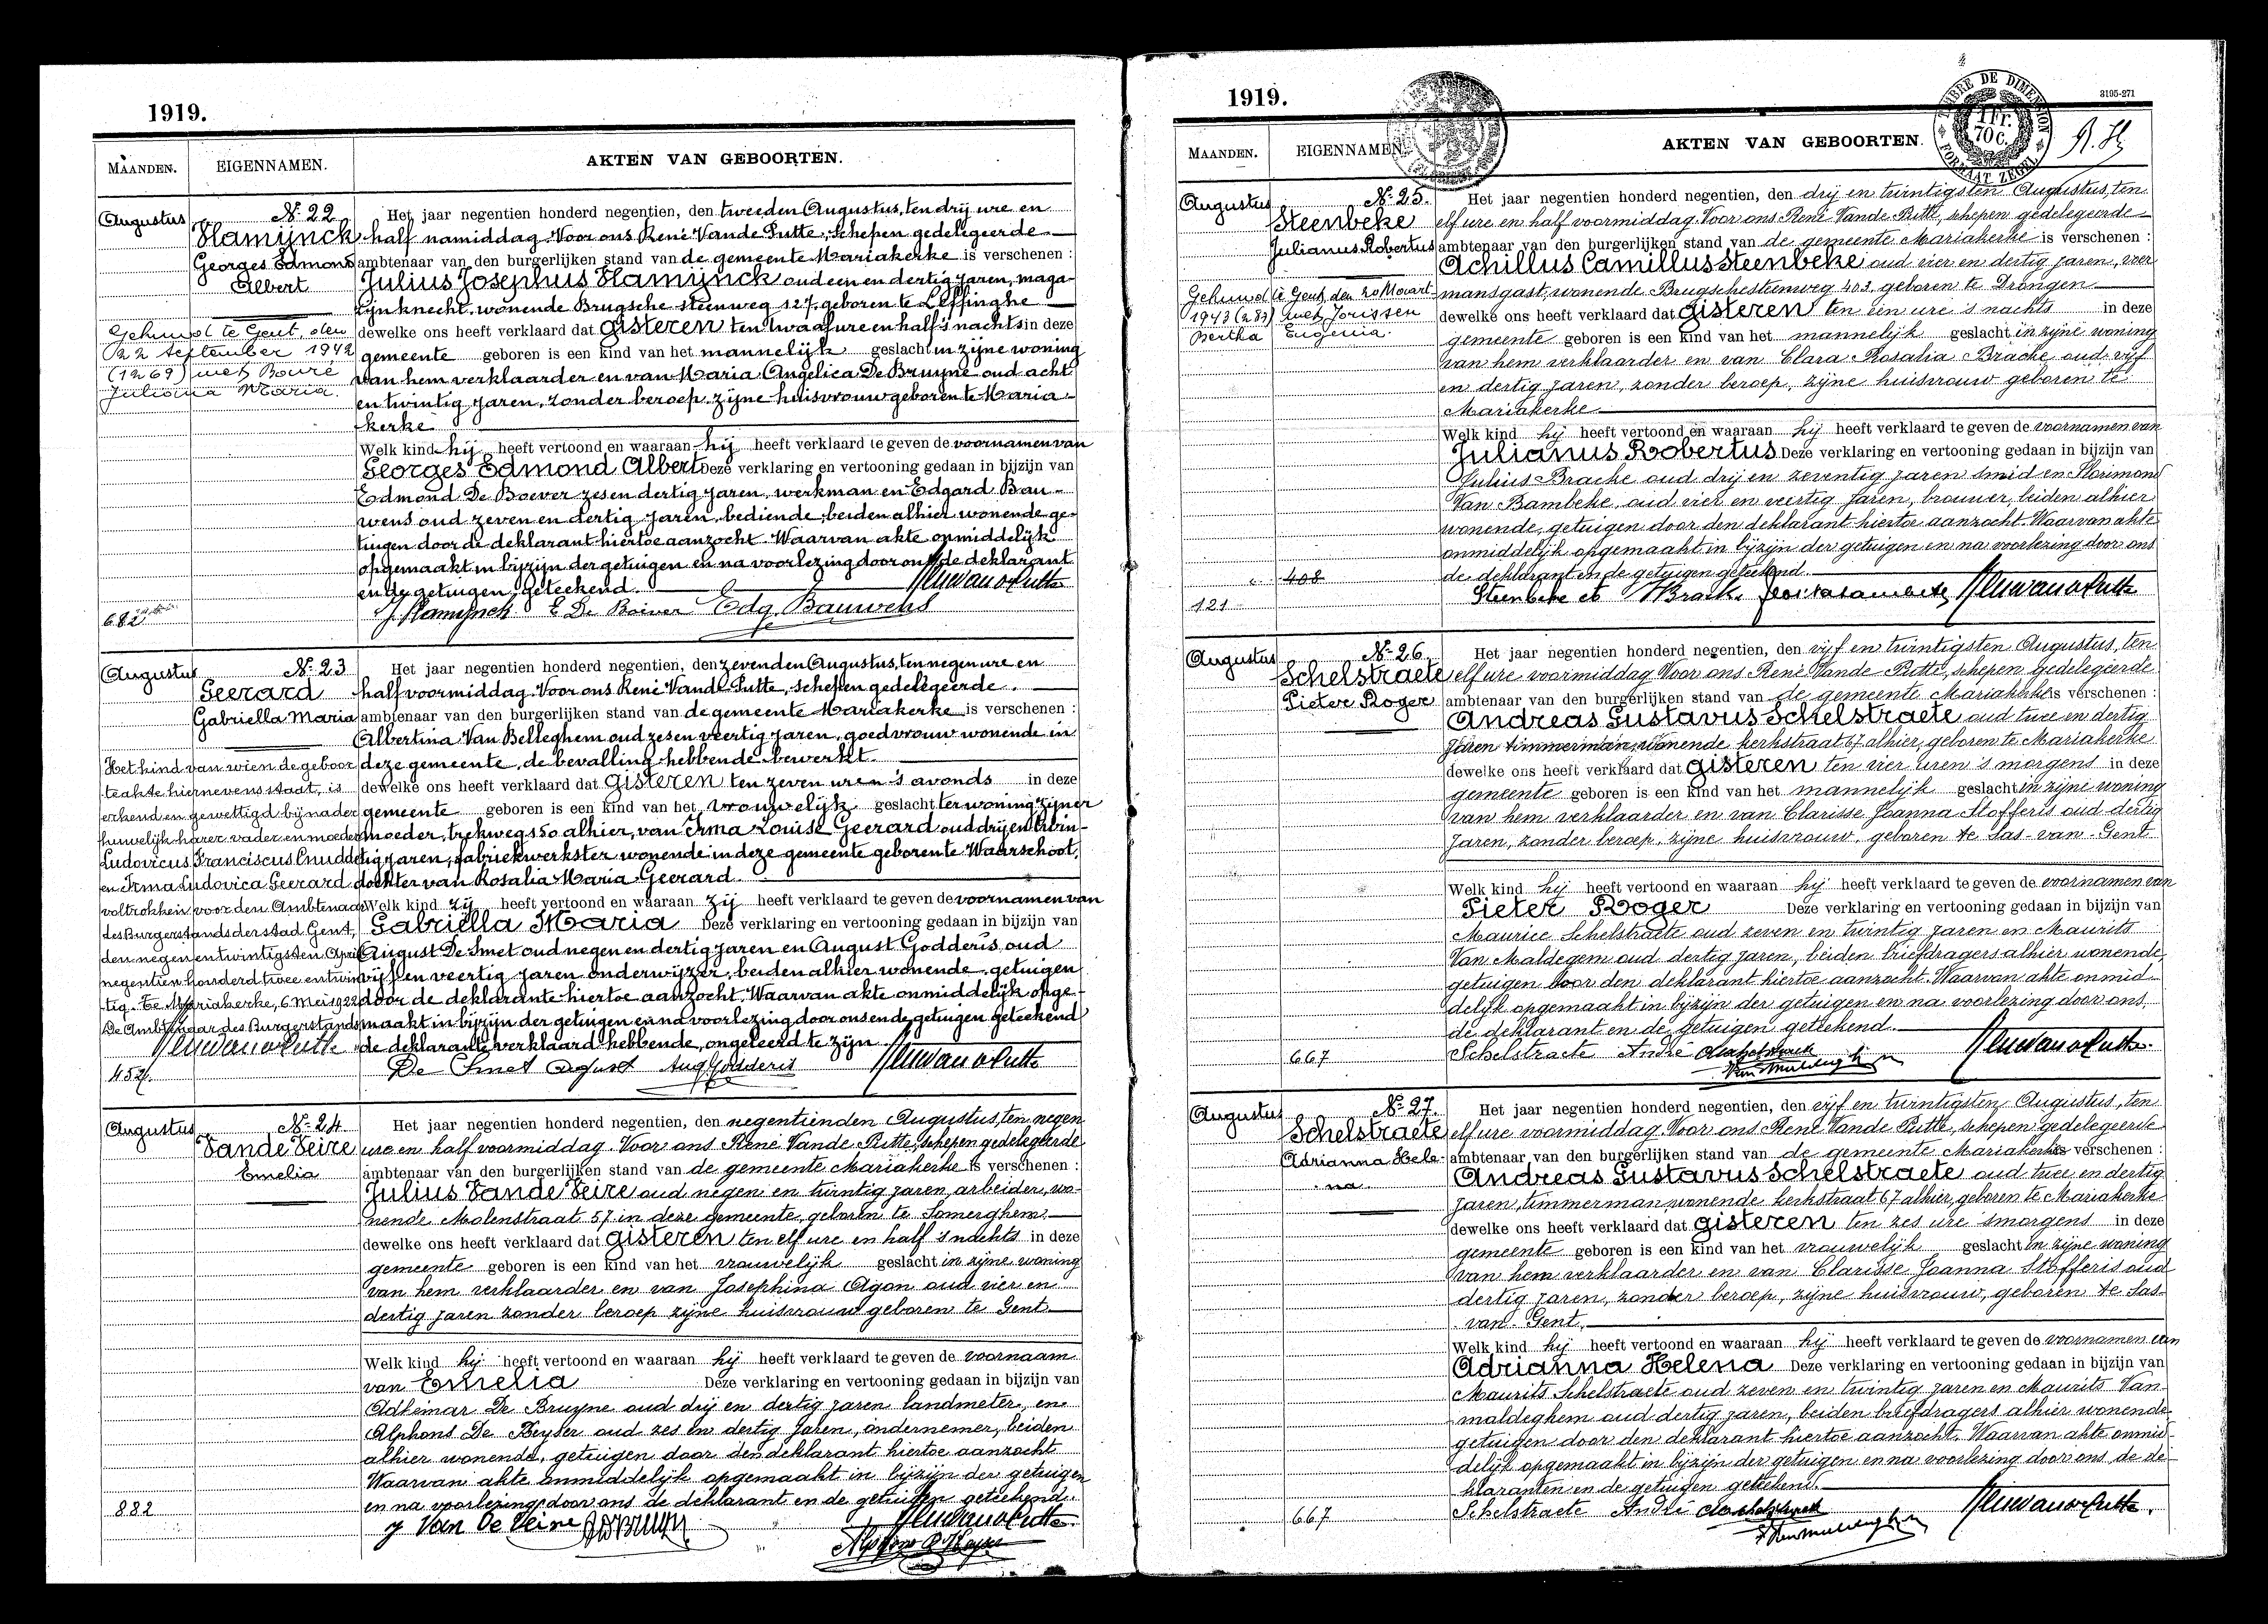 1919.
MAANDEN.
EIGENNAMEN.
AKTEN VAN GEBOORTEN.
Augustus
No 22
Vlamijnck
Georges Edmond
Albert
Gehuwd te Gent, den
22 September 1942
(1269) met Bouré
Juliana Maria.
682
Het jaar negentien honderd negentien, den tweeden Augustus, ten drij ure en
half namiddag. Voor ons René Vande Putte, schepen gedelegeerde
ambtenaar van den burgerlijken stand van de gemeente Mariakerke is verschenen :
Julius Josephus Vlamijnck oud een en dertig jaren, maga-
zijnknecht, wonende Brugsche steenweg 127, geboren te Leffinghe
dewelke ons heeft verklaard dat gisteren ten twaalf ure en half 's nachts in deze
gemeente geboren is een kind van het mannelijk geslacht in zijne woning
van hem verklaarder en van Maria Angelica De Bruyne oud acht
en twintig jaren, zonder beroep, zijne huisvrouw geboren te Maria-
kerke
Welk kind hij heeft vertoond en waaraan hij heeft verklaard te geven de voornamen van
Georges Edmond Albert Deze verklaring en vertooning gedaan in bijzijn van
Edmond De Boever zes en dertig jaren, werkman en Edgard Bau-
wens oud zeven en dertig jaren, bediende, beiden alhier wonende ge-
tuigen door de deklarant hiertoe aanzocht. Waarvan akte onmiddelijk
opgemaakt in bijzijn der getuigen en na voorlezing door ons de deklarant
en de getuigen, geteekend.
J. Vlamynck E De Boever Edg. Bauwens
Augustus
No 23
Geerard
Gabriella Maria
Het kind van wien de geboor
teakte hiernevens staat, is
erkend en gewettigd bij nader
huwelijk harer vader en moeder
Ludovicus Franciscus Cnudde
en Irma Ludovica Geerard
voltrokken voor den Ambtenaar
des Burgerstands der stad Gent,
den negen en twintigsten April
negentien honderd twee en twin
tig. Te Mariakerke, 6 Mei 1922
De Ambtenaar des Burgerstands
452
Het jaar negentien honderd negentien, den zevenden Augustus, ten negen ure en
half voormiddag. Voor ons René Vande Putte, schepen gedelegeerde.
ambtenaar van den burgerlijken stand van de gemeente Mariakerke is verschenen :
Albertina Van Belleghem oud zes en veertig jaren, goedvrouw wonende in
deze gemeente, de bevalling hebbende bewerkt.
dewelke ons heeft verklaard dat gisteren ten zeven uren 's avonds in deze
gemeente geboren is een kind van het vrouwelijk geslacht ter woning zijner
moeder, trekweg 150 alhier, van Irma Louise Geerard oud drij en twin-
tig jaren, fabriekwerkster wonende in deze gemeente geboren te Waarschoot,
dochter van Rosalia Maria Geerard.
Welk kind zij heeft vertoond en waaraan zij heeft verklaard te geven de voornamen van
Gabriëlla Maria Deze verklaring en vertooning gedaan in bijzijn van
August De Smet oud negen en dertig jaren en August Godderis, oud
vijf en veertig jaren onderwijzer, beiden alhier wonende, getuigen
door de deklarante hiertoe aanzocht. Waarvan akte onmiddelijk opge-
maakt in bijzijn der getuigen en na voorlezing door ons en de getuigen geteekend
de deklarante verklaard hebbende, ongeleerd te zijn.
De Smet August Aug Godderis
Augustus
No 24
Vande Veire
Emelia
882
Het jaar negentien honderd negentien, den negentienden Augustus, ten negen
ure en half voormiddag. Voor ons René Vande Putte, schepen gedelegeerde
ambtenaar van den burgerlijken stand van de gemeente Mariakerke is verschenen :
Julius Vande Veire oud negen en twintig jaren, arbeider, wo-
nende Molenstraat 57 in deze gemeente, geboren te Somerghem.
dewelke ons heeft verklaard dat gisteren ten elf ure en half 's nachts in deze
gemeente geboren is een kind van het vrouwelijk geslacht in zijne woning
van hem verklaarder en van Josephina Agon oud vier en
dertig jaren zonder beroep zijne huisvrouw geboren te Gent.
Welk kind hij heeft vertoond en waaraan hij heeft verklaard te geven de voornaam
van Emelia Deze verklaring en vertooning gedaan in bijzijn van
Adhemar De Bruyne oud drij en dertig jaren landmeter, en
Alphons De Keyser oud zes en dertig jaren, ondernemer, beiden
alhier wonende, getuigen door den deklarant hiertoe aanzocht
Waarvan akte onmiddelijk opgemaakt in bijzijn der getuigen
en na voorlezing door ons de deklarant en de getuigen geteekend.
J Van De Veire
1919.
3195-271
TIMBRE DE DIMENSION
1 Fr.
70 C.
FORMAAT ZEGEL
MAANDEN.
EIGENNAMEN.
AKTEN VAN GEBOORTEN.
Augustus
No 25.
Steenbeke
Julianus Robertus
Gehuwd te Gent, den 20 Maart
1943 (283) met Jorissen
Bertha Eugenia.
408
121
Het jaar negentien honderd negentien, den drij en twintigsten Augustus, ten
elf ure en half voormiddag. Voor ons René Vande Putte, schepen gedelegeerde
ambtenaar van den burgerlijken stand van de gemeente Mariakerke is verschenen :
Achillus Camillus Steenbeke oud vier en dertig jaren, voer
mansgast, wonende Brugschesteenweg 403, geboren te Drongen
dewelke ons heeft verklaard dat gisteren ten een ure 's nachts in deze
gemeente geboren is een kind van het mannelijk geslacht in zijne woning
van hem verklaarder en van Clara Rosalia Bracke oud vijf
en dertig jaren, zonder beroep, zijne huisvrouw geboren te
Mariakerke
Welk kind hij heeft vertoond en waaraan hij heeft verklaard te geven de voornamen van
Julianus Robertus Deze verklaring en vertooning gedaan in bijzijn van
Julius Bracke oud drij en zeventig jaren smid en Florimond
Van Bambeke, oud vier en veertig jaren, brouwer, beiden alhier
wonende, getuigen door den deklarant hiertoe aanzocht. Waarvan akte
onmiddelijk opgemaakt in bijzijn der getuigen en na voorlezing door ons
de deklarant en de getuigen geteekend.
Augustus
No 26
Schelstraete
Pieter Roger
667
Het jaar negentien honderd negentien, den vijf en twintigsten Augustus, ten
elf ure voormiddag. Voor ons René Vande Putte, schepen gedelegeerde
ambtenaar van den burgerlijken stand van de gemeente Mariakerke is verschenen :
Andreas Gustavus Schelstraete oud twee en dertig
jaren timmerman, wonende kerkstraat 67 alhier, geboren te Mariakerke
dewelke ons heeft verklaard dat gisteren ten vier uren 's morgens in deze
gemeente geboren is een kind van het mannelijk geslacht in zijne woning
van hem verklaarder en van Clarisse Joanna Stofferis oud dertig
jaren, zonder beroep, zijne huisvrouw, geboren te Sas-van-Gent
Welk kind hij heeft vertoond en waaraan hij heeft verklaard te geven de voornamen van
Pieter Roger Deze verklaring en vertooning gedaan in bijzijn van
Maurice Schelstraete oud zeven en twintig jaren en Maurits
Van Maldegem oud dertig jaren, beiden briefdragers alhier wonende,
getuigen door den deklarant hiertoe aanzocht. Waarvan akte onmid-
delijk opgemaakt in bijzijn der getuigen en na voorlezing door ons,
de deklarant en de getuigen geteekend.
Schelstraete André
Augustus
No 27.
Schelstraete
Adrianna Hele-
na.
667
Het jaar negentien honderd negentien, den vijf en twintigsten Augustus, ten
elf ure voormiddag. Voor ons René Vande Putte, schepen gedelegeerde
ambtenaar van den burgerlijken stand van de gemeente Mariakerke is verschenen :
Andreas Gustavus Schelstraete oud twee en dertig
jaren, timmerman, wonende kerkstraat 67 alhier, geboren te Mariakerke
dewelke ons heeft verklaard dat gisteren ten zes ure 'smorgens in deze
gemeente geboren is een kind van het vrouwelijk geslacht in zijne woning
van hem verklaarder en van Clarisse Joanna Stofferis oud
dertig jaren, zonder beroep, zijne huisvrouw, geboren te Sas-
van-Gent.
Welk kind hij heeft vertoond en waaraan hij heeft verklaard te geven de voornamen van
Adrianna Helena Deze verklaring en vertooning gedaan in bijzijn van
Maurits Schelstraete oud zeven en twintig jaren en Maurits Van
maldeghem oud dertig jaren, beiden briefdragers alhier wonende
getuigen door den deklarant hiertoe aanzocht. Waarvan akte onmid-
delijk opgemaakt in bijzijn der getuigen en na voorlezing door ons, de de-
klaranten en de getuigen geteekend.
Schelstraete André